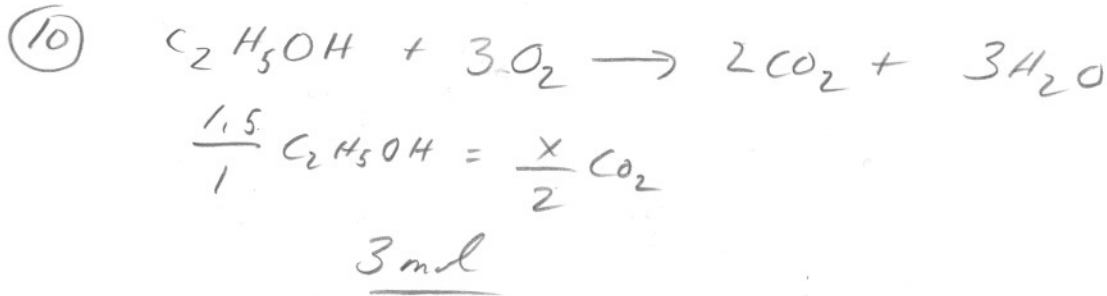 10 C2H5OH + 3O2 → 2CO2 + 3H2O
1,5/1 C2H5OH = x/2 CO2
3 mol